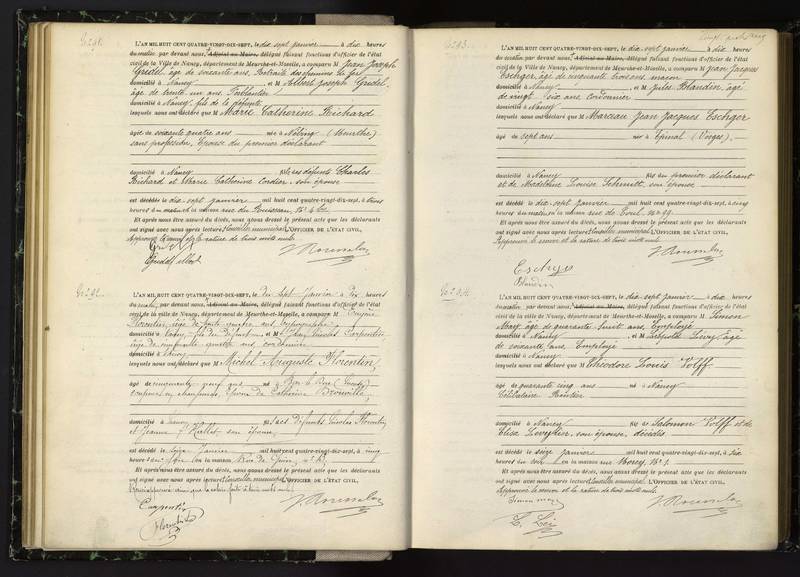 No 91.
L'AN MIL HUIT CENT QUATRE-VINGT-DIX-SEPT, le dix sept janvier à dix heures
du matin par devant nous, Adjoint au Maire, délégué faisant fonctions d'officier de l'état
civil de la Ville de Nancy, département de Meurthe-et-Moselle, a comparu M Jean Joseph
Gridel, âgé de soixante ans, Retraité des chemins de fer
domicilié à Nancy et M Albert Joseph Gridel,
âgé de trente un ans, Ferblantier
domicilié à Nancy, fils de la défunte
lesquels nous ont déclaré que M Marie Catherine Richard
âgé de soixante quatre ans née à Nébing (Meurthe)
sans profession, Epouse du premier déclarant
domicilié à Nancy fille des défunts Charles
Richard et Marie Catherine Cordier, son épouse
est décédée le dix sept janvier mil huit cent quatre-vingt-dix-sept, à trois
heures du matin en sa maison rue du Ruisseau, No 4 bis
Et après nous être assuré du décès, nous avons dressé le présent acte que les déclarants
ont signé avec nous après lecture. Conseiller municipal L'OFFICIER DE L'ÉTAT CIVIL,
Approuvé la nature de trois mots nuls
V. Rousselot
No 92.
L'AN MIL HUIT CENT QUATRE-VINGT-DIX-SEPT, le dix sept Janvier à dix heures
du matin, par devant nous, Adjoint au Maire, délégué faisant fonctions d'officier de l'état
civil de la ville de Nancy, département de Meurthe-et-Moselle, a comparu M Eugène
Florentin, âgé de trente quatre ans
domicilié à Nancy, fils du défunt et M Carpentier
âgé de cinquante quatre ans cordonnier
domicilié à Nancy
lesquels nous ont déclaré que M Michel Auguste Florentin,
âgé de cinquante neuf ans né à Bar-le-Duc (Meuse)
époux de Catherine
domicilié à Nancy fils des défunts Nicolas Florentin
et Jeanne son épouse,
est décédé le seize Janvier mil huit cent quatre-vingt-dix-sept, à cinq
heures du soir en sa maison Rue
Et après nous être assuré du décès, nous avons dressé le présent acte que les déclarants
ont signé avec nous après lecture. Conseiller municipal L'OFFICIER DE L'ÉTAT CIVIL,
Carpentier
V. Rousselot
Florentin
No 93.
L'AN MIL HUIT CENT QUATRE-VINGT-DIX-SEPT, le dix-sept janvier à dix heures
du matin par devant nous, Adjoint au Maire, délégué faisant fonctions d'officier de l'état
civil de la Ville de Nancy, département de Meurthe-et-Moselle, a comparu M Jean Jacques
Eschger, âgé de cinquante trois ans, maçon
domicilié à Nancy et M Jules Blandin, âgé
de vingt six ans, cordonnier
domicilié à Nancy
lesquels nous ont déclaré que M Marceau Jean Jacques Eschger
âgé de sept ans né à Epinal (Vosges).
domicilié à Nancy fils du premier déclarant
et de Madeleine Louise Schmitt, son épouse
est décédé le dix-sept janvier mil huit cent quatre-vingt-dix-sept, à cinq
heures du matin en sa maison rue de Toul, No 99.
Et après nous être assuré du décès, nous avons dressé le présent acte que les déclarants
ont signé avec nous après lecture. Conseiller municipal L'OFFICIER DE L'ÉTAT CIVIL,
Approuvé le renvoi et la rature de trois mots nuls
V. Rousselot
Eschger
Blandin
No 94.
L'AN MIL HUIT CENT QUATRE-VINGT-DIX-SEPT, le dix-sept janvier à dix heures
du matin par devant nous, Adjoint au Maire, délégué faisant fonctions d'officier de l'état
civil de la Ville de Nancy, département de Meurthe-et-Moselle, a comparu M Simon
Marx, âgé de quarante huit ans, Employé
domicilié à Nancy et M Léopold Lévy, âgé
de soixante ans, Employé
domicilié à Nancy
lesquels nous ont déclaré que M Théodore Louis Wolff
âgé de quarante cinq ans né à Nancy
Célibataire Rentier
domicilié à Nancy fils de Salomon Wolff et de
Elisa son épouse, décédés
est décédé le seize janvier mil huit cent quatre-vingt-dix-sept, à dix
heures du soir en sa maison rue No 1.
Et après nous être assuré du décès, nous avons dressé le présent acte que les déclarants
ont signé avec nous après lecture. Conseiller municipal L'OFFICIER DE L'ÉTAT CIVIL,
Approuvé le renvoi et la rature de trois mots nuls
Simon marx
V. Rousselot